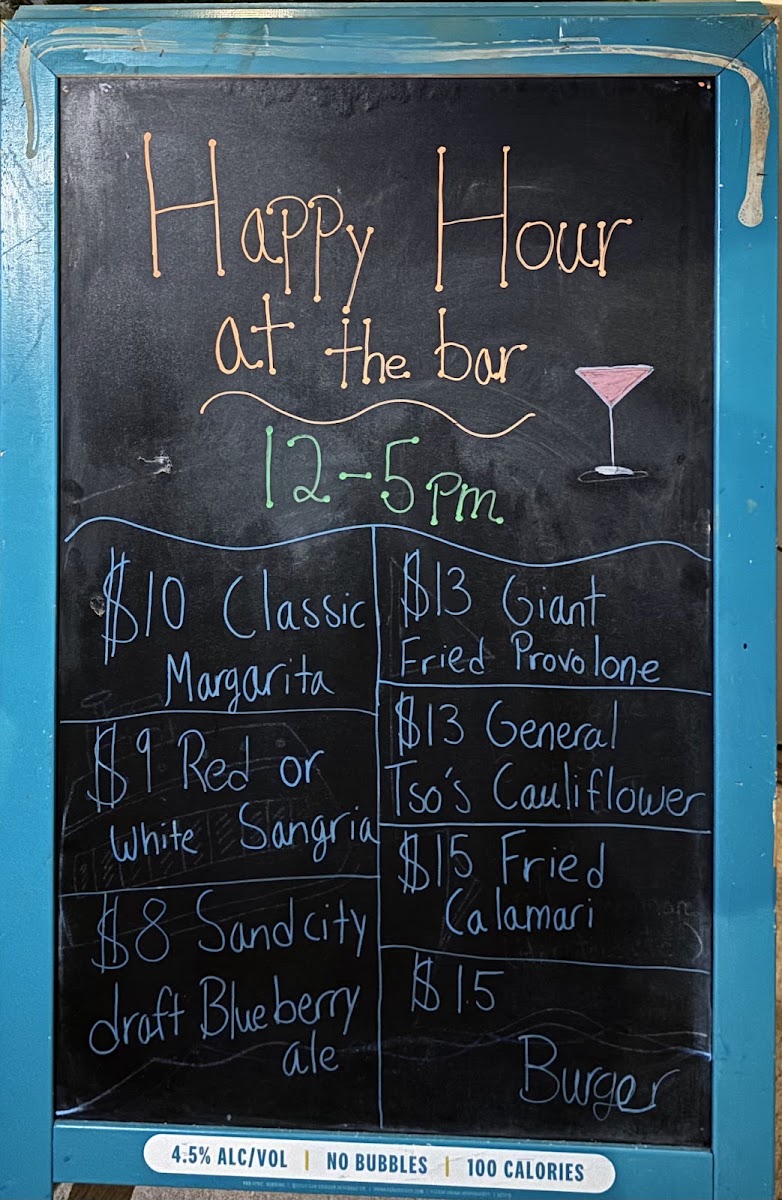 Happy Hour
at the bar
12-5pm
$10 Classic
Margarita
$9 Red or
White Sangria
$8 Sand city
draft Blueberry
ale
$13 Giant
Fried Provolone
$13 General
Tso's Cauliflower
$15 Fried
Calamari
$15
Burger
4.5% ALC/VOL | NO BUBBLES | 100 CALORIES